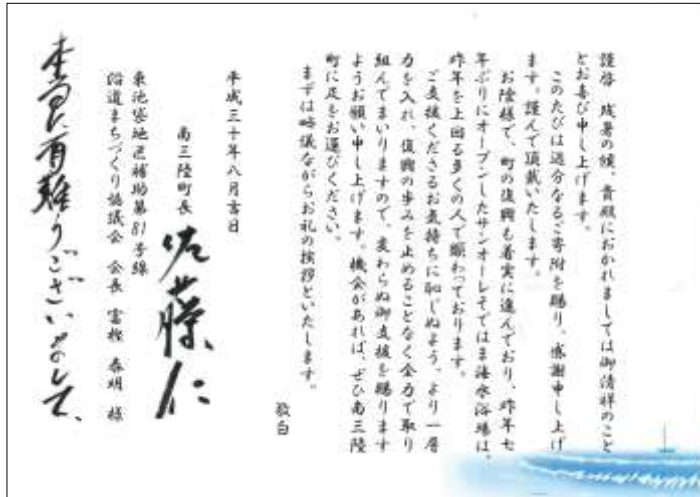 謹啓　残暑の候、貴殿におかれましては御清祥のこと
とお喜び申し上げます。
このたびは過分なるご寄附を賜り、感謝申し上げ
ます。謹んで頂戴いたします。
お陰様で、町の復興も着実に進んでおり、昨年七
年ぶりにオープンしたサンオーレそではま海水浴場は、
昨年を上回る多くの人で賑わっております。
ご支援くださるお気持ちに恥じぬよう、より一層
力を入れ、復興の歩みを止めることなく全力で取り
組んでまいりますので、変わらぬ御支援を賜ります
ようお願い申し上げます。機会があれば、ぜひ南三陸
町に足をお運びください。
まずは略儀ながらお礼の挨拶といたします。
敬白
平成三十年八月吉日
南三陸町長　佐藤仁
東池袋地区補助第81号線
沿道まちづくり協議会　会長　富樫　泰明　様
本当に有難うございました、